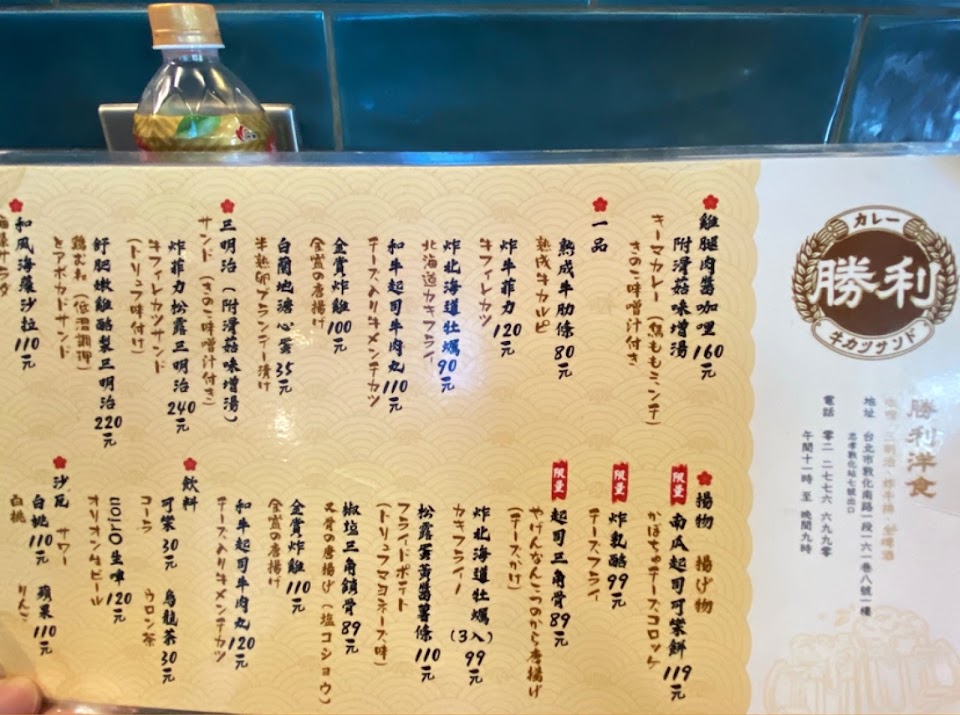 カレー
勝利
牛カツサンド
勝利洋食
地址 台北市敦化南路一段一六一巷八號一樓
忠孝敦化站七號出口
電話 零二 二七七六 六九九零
午間十一時 至 晚間九時
雞腿肉醬咖哩 160元
附滑菇味增湯
キーマカレー（鶏ももミンチ）
きのこ味噌汁付き
一品
熟成牛肋條 80元
熟成牛カルビ
炸牛菲力 120元
牛フィレカツ
炸北海道牡蠣 90元
北海道カキフライ
和牛起司牛肉丸 110元
チーズ入りキメンチカツ
金賞の炸雞 100元
金賞の唐揚げ
白蘭地溏心蛋 35元
半熟卵ブランデー漬け
三明治（附滑菇味增湯）
サンド（きのこ味噌汁付き）
炸菲力松露三明治 240元
牛フィレカツサンド
（トリュフ味付け）
舒肥嫩雞酪梨三明治 220元
鶏むね（低溫調理）
とアボカドサンド
和風海藻沙拉 110元
揚物 揚げ物
限量 南瓜起司可樂餅 119元
かぼちゃチーズコロッケ
限量 炸乳酪 99元
チーズフライ
限量 起司三角骨 89元
やげんなんこつのから唐揚げ
（チーズかけ）
炸北海道牡蠣（3入）99元
カキフライ
松露蛋黃醬薯條 110元
フライドポテト
（トリュフマヨネーズ味）
椒塩三角鎖骨 89元
叉骨の唐揚げ（塩コショウ）
金賞炸雞 110元
金賞の唐揚げ
和牛起司牛肉丸 120元
チーズ入りキメンチカツ
飲料
可樂 30元 烏龍茶 30元
コーラ ウロン茶
ORION 生啤 120元
オリオン生ビール
沙瓦 サワー
白桃 110元 蘋果 110元
白桃 りんご